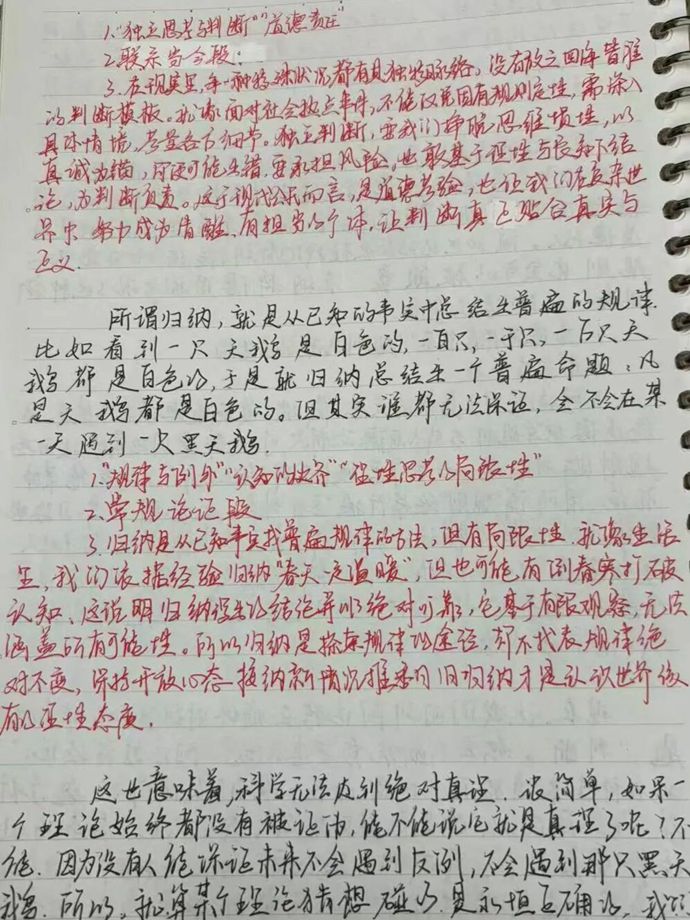 1."独立思考与判断""道德责任"
2.联系当今段:
3.在现实里,每一种特殊状况都有其独特脉络,没有放之四海皆准
的判断模板。就像面对社会热点事件,不能仅凭固有规则定性,需深入
具体情境,考量各方细节。独立判断,要我们挣脱思维惯性,以
真诚为锚,即便可能出错、要承担风险,也敢基于理性与良知下结
论,为判断负责。这于现代公民而言,是道德考验,也让我们在复杂世
界中努力成为清醒、有担当的个体,让判断真正贴合真实与
正义.
所谓归纳,就是从已知的事实中总结出普遍的规律.
比如看到一只天鹅是白色的,一百只,一千只,一万只天
鹅都是白色的,于是就归纳总结出一个普遍命题:凡
是天鹅都是白色的。但其实谁都无法保证,会不会在某
一天遇到一只黑天鹅.
1."规律与例外""认知的边界""理性思考的局限性"
2.常规论证段
3.归纳是从已知事实找普遍规律的方法,但有局限性.就像生活
里,我们依据经验归纳"春天一定温暖",但也可能有倒春寒打破
认知,这说明归纳得出的结论并非绝对可靠,它基于有限观察,无法
涵盖所有可能性。所以归纳是探索规律的途径,却不代表规律绝
对不变,保持开放心态接纳新情况推翻旧归纳才是认识世界该
有的理性态度.
这也意味着,科学无法达到绝对真理.很简单,如果一
个理论始终都没有被证伪,能不能说它就是真理了呢?不
能.因为没有人能保证未来不会遇到反例,不会遇到那只黑天
鹅.所以,就算某个理论猜想碰巧是永恒正确的,我们